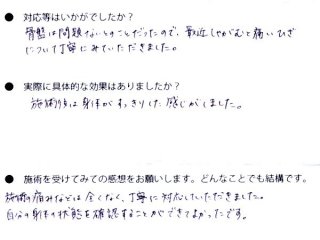 ● 対応等はいかがでしたか？
骨盤は問題ないとのことだったので、最近しゃがむと痛いひざ
について丁寧にみていただきました。
● 実際に具体的な効果はありましたか？
施術後は身体がすっきりした感じがしました。
● 施術を受けてみての感想をお願いします。どんなことでも結構です。
施術の痛みなどは全くなく、丁寧に対応していただきました。
自分の身体の状態を確認することができてよかったです。